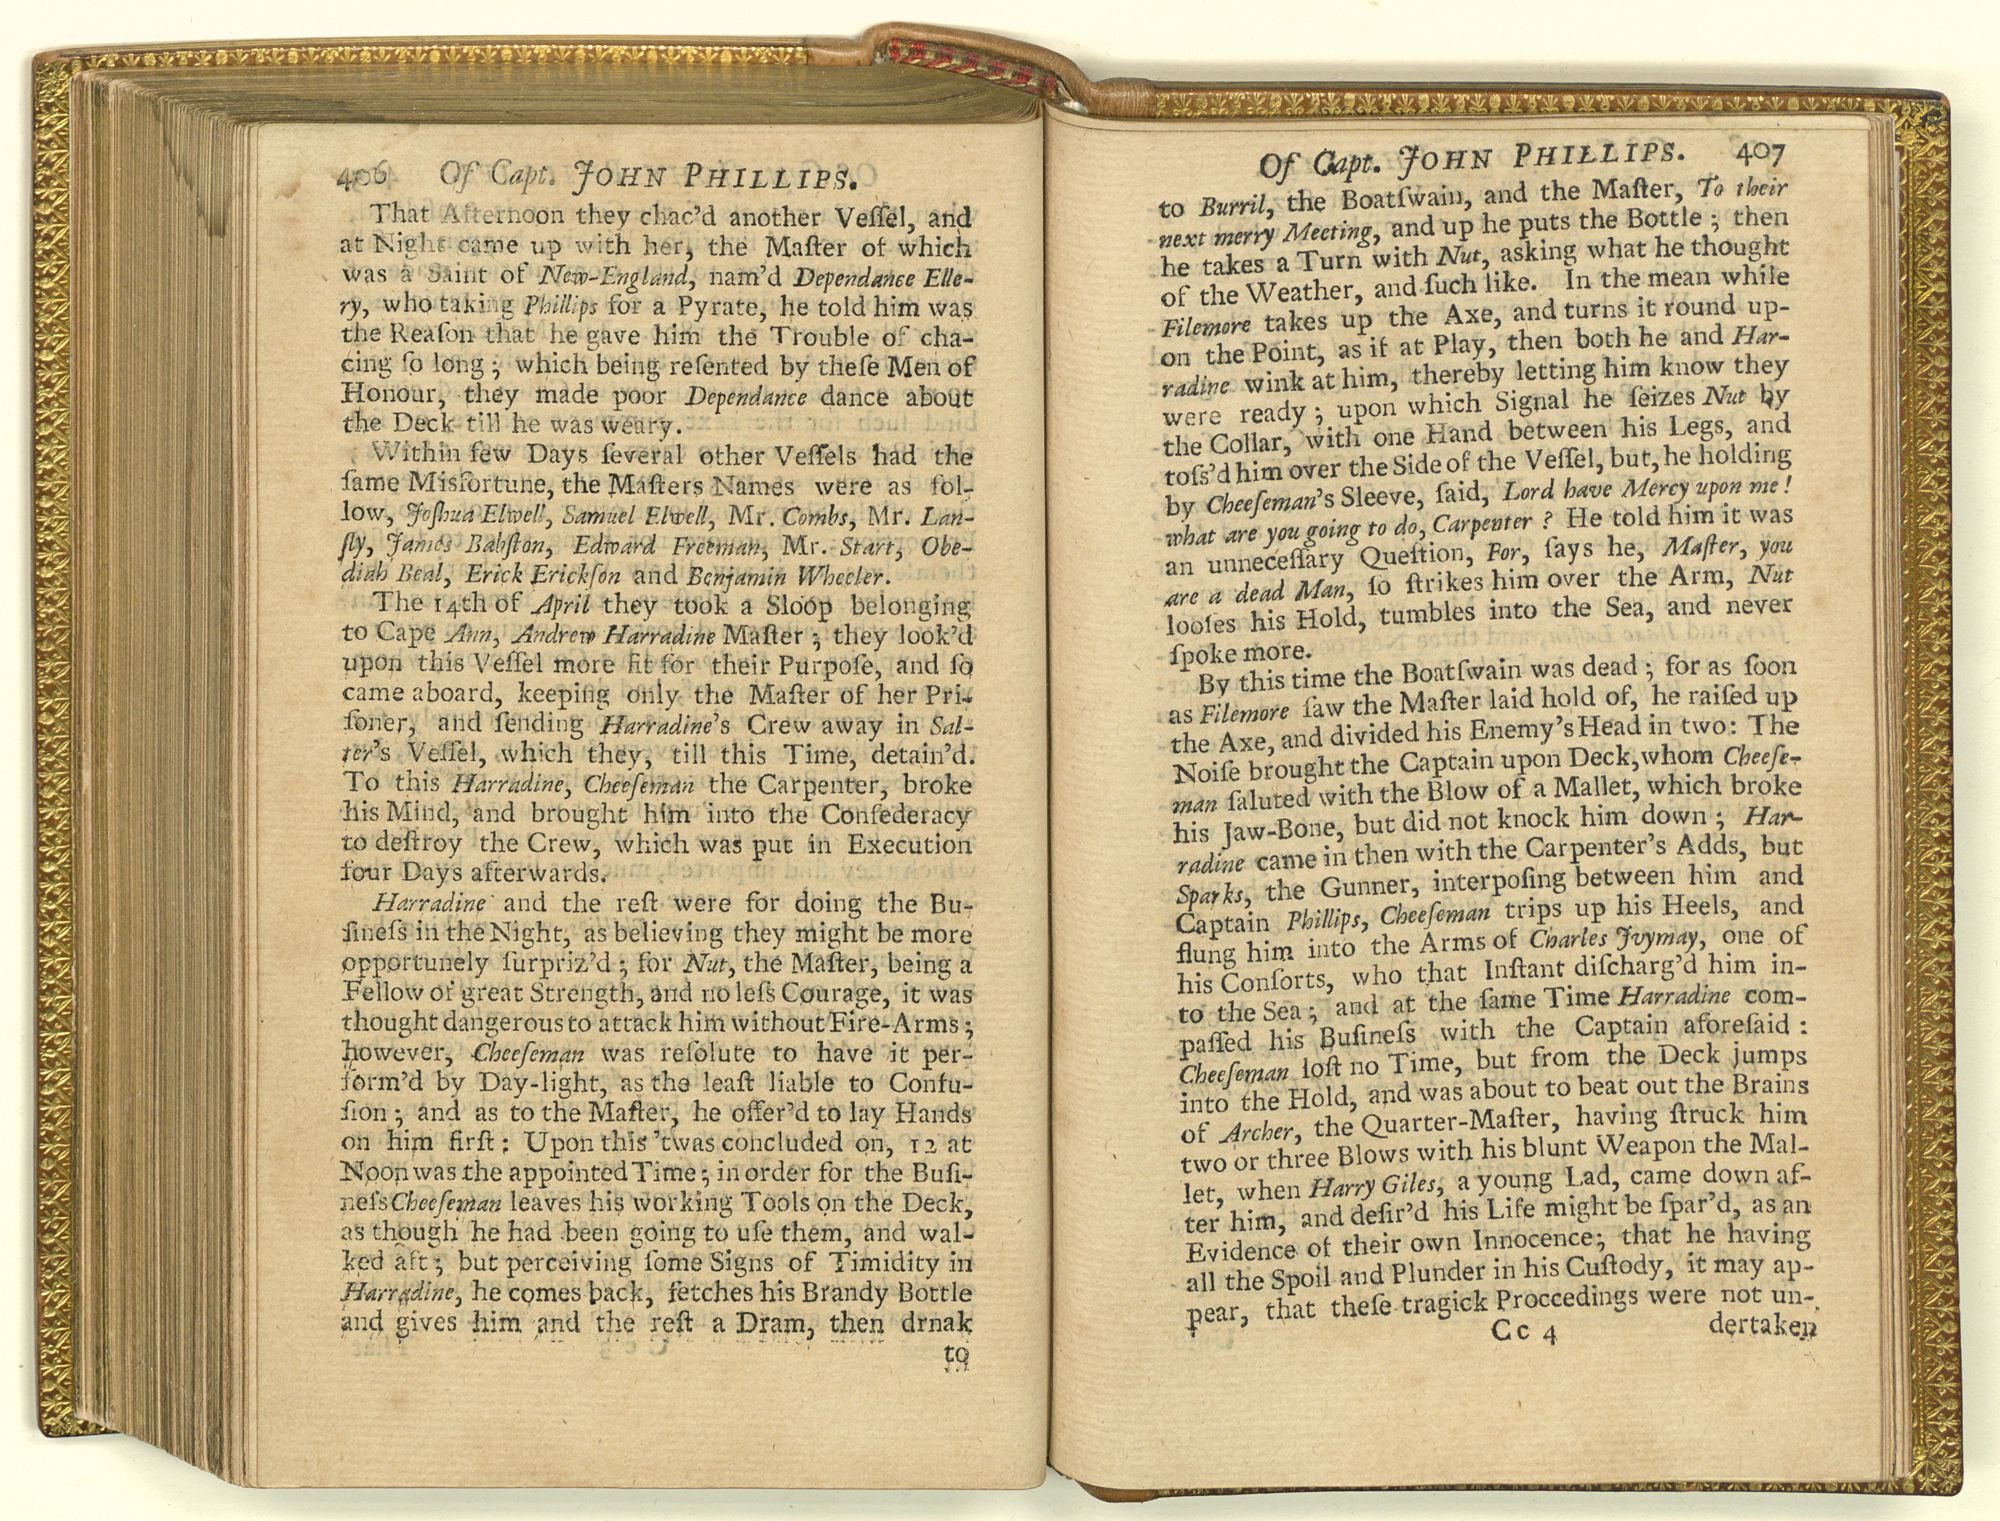 406 Of Capt. JOHN PHILLIPS.
That Afternoon they chac'd another Veſſel, and
at Night came up with her, the Maſter of which
was a Saint of New-England, nam'd Dependance Elle-
ry, who taking Phillips for a Pyrate, he told him was
the Reaſon that he gave him the Trouble of cha-
cing ſo long; which being reſented by theſe Men of
Honour, they made poor Dependance dance about
the Deck till he was weary.
Within few Days ſeveral other Veſſels had the
ſame Misfortune, the Maſters Names were as fol-
low, Joſhua Elwell, Samuel Elwell, Mr. Combs, Mr. Lan-
ſly, James Babſton, Edward Freeman, Mr. Start, Obe-
diah Beal, Erick Erickſon and Benjamin Wheeler.
The 14th of April they took a Sloop belonging
to Cape Ann, Andrew Harradine Maſter; they look'd
upon this Veſſel more fit for their Purpoſe, and ſo
came aboard, keeping only the Maſter of her Pri-
ſoner, and ſending Harradine's Crew away in Sal-
ter's Veſſel, which they, till this Time, detain'd.
To this Harradine, Cheeſeman the Carpenter, broke
his Mind, and brought him into the Confederacy
to deſtroy the Crew, which was put in Execution
four Days afterwards.
Harradine and the reſt were for doing the Bu-
ſineſs in the Night, as believing they might be more
opportunely ſurpriz'd; for Nut, the Maſter, being a
Fellow of great Strength, and no leſs Courage, it was
thought dangerous to attack him without Fire-Arms;
however, Cheeſeman was reſolute to have it per-
form'd by Day-light, as the leaſt liable to Confu-
ſion; and as to the Maſter, he offer'd to lay Hands
on him firſt: Upon this 'twas concluded on, 12 at
Noon was the appointed Time; in order for the Buſi-
neſs Cheeſeman leaves his working Tools on the Deck,
as though he had been going to uſe them, and wal-
ked aft; but perceiving ſome Signs of Timidity in
Harradine, he comes back, fetches his Brandy Bottle
and gives him and the reſt a Dram, then drnak
to
Of Capt. JOHN PHILLIPS. 407
to Burril, the Boatſwain, and the Maſter, To their
next merry Meeting, and up he puts the Bottle; then
he takes a Turn with Nut, asking what he thought
of the Weather, and ſuch like. In the mean while
Filemore takes up the Axe, and turns it round up-
on the Point, as if at Play, then both he and Har-
radine wink at him, thereby letting him know they
were ready; upon which Signal he ſeizes Nut by
the Collar, with one Hand between his Legs, and
toſs'd him over the Side of the Veſſel, but, he holding
by Cheeſeman's Sleeve, ſaid, Lord have Mercy upon me!
what are you going to do, Carpenter? He told him it was
an unneceſſary Queſtion, For, ſays he, Maſter, you
are a dead Man, ſo ſtrikes him over the Arm, Nut
looſes his Hold, tumbles into the Sea, and never
ſpoke more.
By this time the Boatſwain was dead; for as ſoon
as Filemore ſaw the Maſter laid hold of, he raiſed up
the Axe, and divided his Enemy's Head in two: The
Noiſe brought the Captain upon Deck, whom Cheeſe-
man ſaluted with the Blow of a Mallet, which broke
his Jaw-Bone, but did not knock him down; Har-
radine came in then with the Carpenter's Adds, but
Sparks, the Gunner, interpoſing between him and
Captain Phillips, Cheeſeman trips up his Heels, and
flung him into the Arms of Charles Jvymay, one of
his Conſorts, who that Inſtant diſcharg'd him in-
to the Sea; and at the ſame Time Harradine com-
paſſed his Buſineſs with the Captain aforeſaid:
Cheeſeman loſt no Time, but from the Deck jumps
into the Hold, and was about to beat out the Brains
of Archer, the Quarter-Maſter, having ſtruck him
two or three Blows with his blunt Weapon the Mal-
let, when Harry Giles, a young Lad, came down af-
ter him, and deſir'd his Life might be ſpar'd, as an
Evidence of their own Innocence; that he having
all the Spoil and Plunder in his Cuſtody, it may ap-
pear, that theſe tragick Proceedings were not un-
Cc 4 dertaken